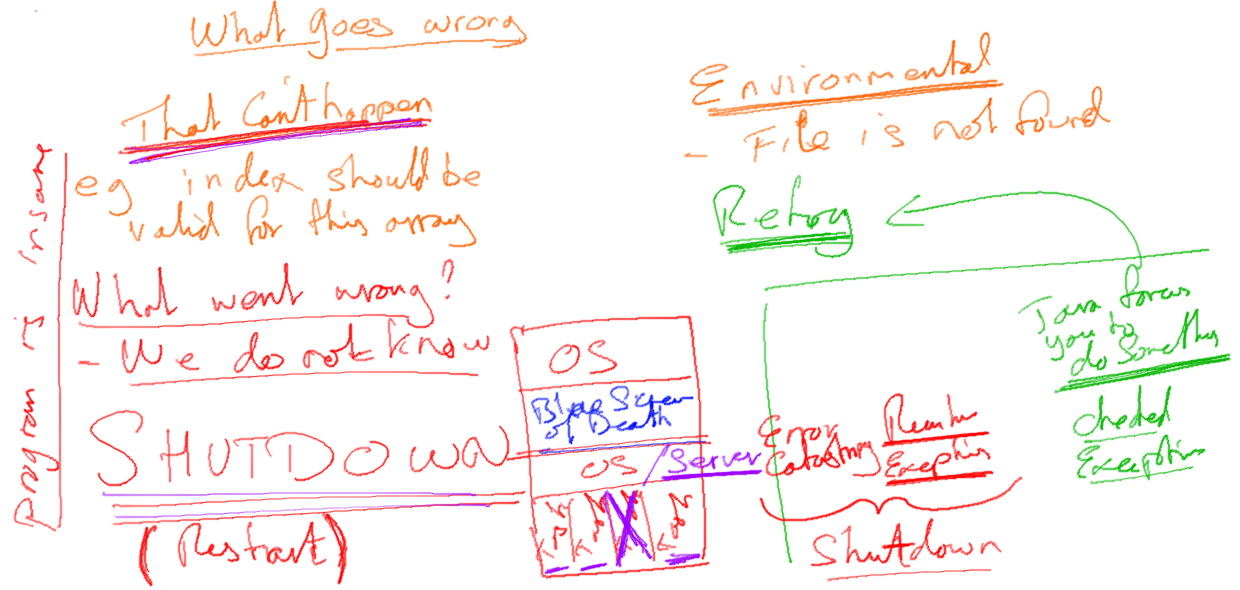 What goes wrong
That Can't happen
eg index should be
valid for this array
program is insane
What went wrong?
- We do not know
SHUTDOWN
(Restart)
OS
Blue Screen
of Death
OS / Server
Environmental
- File is not found
Retry
Java forces
you to
do Something
checked
Exceptions
Error
Runtime
Exceptions
Shutdown